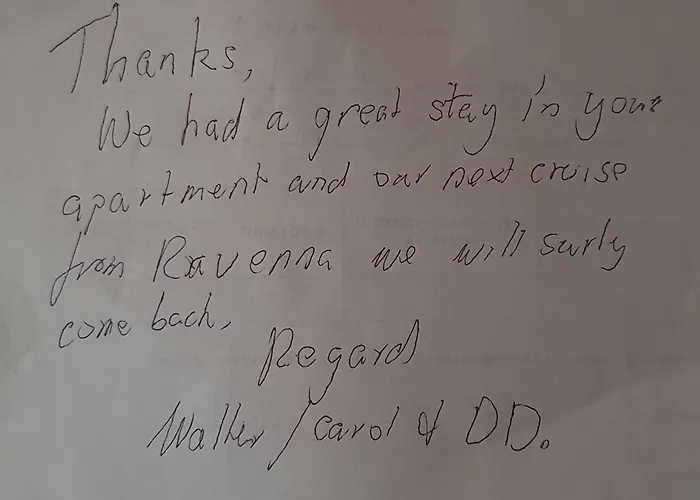 Thanks,
We had a great stay in your
apartment and our next cruise
from Ravenna we will surly
come back,
Regards
Walter / Carol & DD.